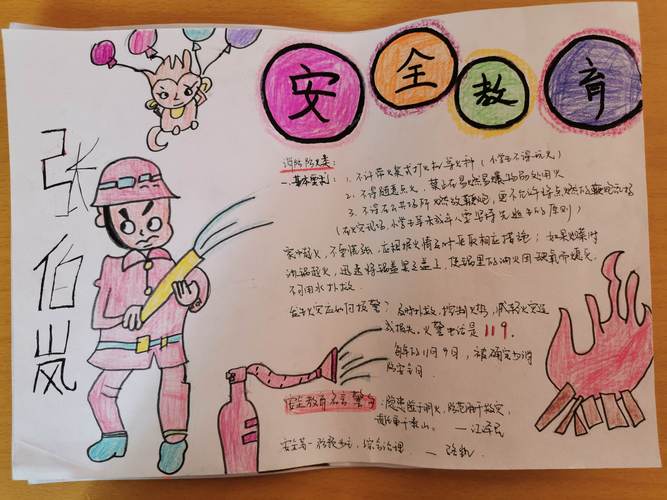 安全教育
张伯岚
消防防火类:
一.基本要求: 1.不许带火柴或打火机等火种(小学生不得玩火)
2.不得随意点火,禁止在易燃易爆物品处用火
3.不得在公共场所燃放鞭炮,更不允许将点燃的鞭炮乱扔
(在火灾现场,小学生等未成年人要坚持先逃生的原则)
家中起火,不要慌张,应根据火情及时采取相应措施:如果炒菜时
油锅起火,迅速将锅盖紧紧盖上,使锅里的油火因缺氧而熄灭,
不可用水扑救.
发生火灾应如何报警? 及时扑救,控制火势,减轻火灾造
成损失,火警电话是119.
每年的11月9日,被确定为消
防安全日.
安全教育名言警句:隐患险于明火,防范胜于救灾,
责任重于泰山. —江泽民
安全第一